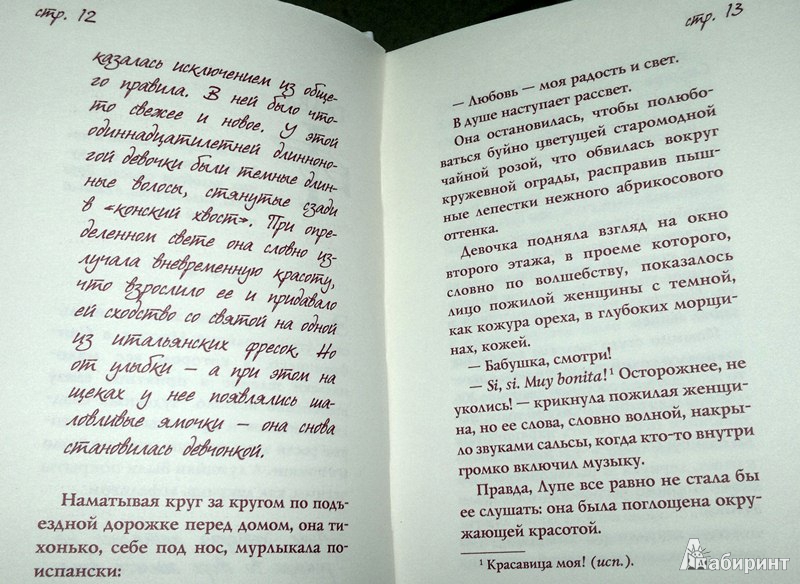 стр. 12
казалась исключением из обще-
го правила. В ней было что-
то свежее и новое. У этой
одиннадцатилетней длинноно-
гой девочки были темные длин-
ные волосы, стянутые сзади
в «конский хвост». При опре-
деленном свете она словно из-
лучала вневременную красоту,
что взрослило ее и придавало
ей сходство со святой на одной
из итальянских фресок. Но
от улыбки — а при этом на
щеках у нее появлялись ша-
ловливые ямочки — она снова
становилась девчонкой.
Наматывая круг за кругом по подъ-
ездной дорожке перед домом, она ти-
хонько, себе под нос, мурлыкала по-
испански:
стр. 13
— Любовь — моя радость и свет.
В душе наступает рассвет.
Она остановилась, чтобы полюбо-
ваться буйно цветущей старомодной
чайной розой, что обвилась вокруг
кружевной ограды, расправив пыш-
ные лепестки нежного абрикосового
оттенка.
Девочка подняла взгляд на окно
второго этажа, в проеме которого,
словно по волшебству, показалось
лицо пожилой женщины с темной,
как кожура ореха, в глубоких морщи-
нах, кожей.
— Бабушка, смотри!
— Si, si. Muy bonita!¹ Осторожнее, не
уколись! — крикнула пожилая женщи-
на, но ее слова, словно волной, накры-
ло звуками сальсы, когда кто-то внутри
громко включил музыку.
Правда, Лупе все равно не стала бы
ее слушать: она была поглощена окру-
жающей красотой.
¹ Красавица моя! (исп.).
Лабиринт